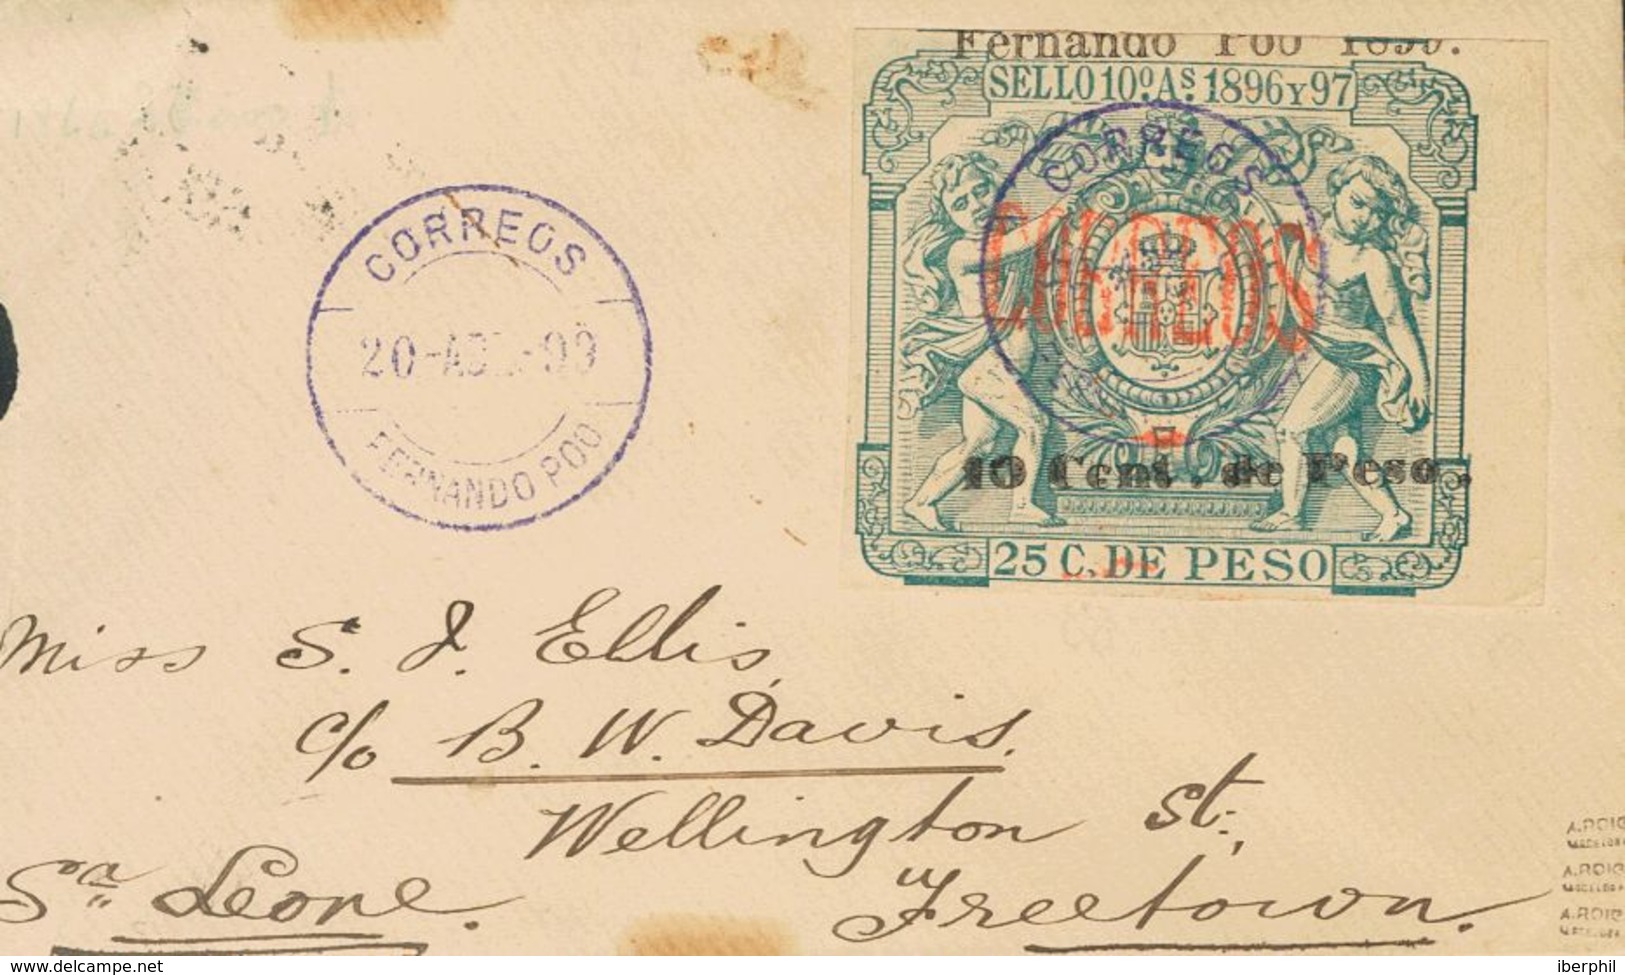 Fernando Poo 1899.
SELLO 10º. As. 1896 Y 97
CORREOS
CORREOS
10 Cent. de Peso.
25 C. DE PESO
CORREOS
20-ABL-99
FERNANDO POO
Miss S. J. Ellis,
c/o B. W. Davis.
Wellington St.,
Freetown.
Sa Leone.
A.ROIG
A.ROIG
A.ROIG
delcampe.net
iberphil